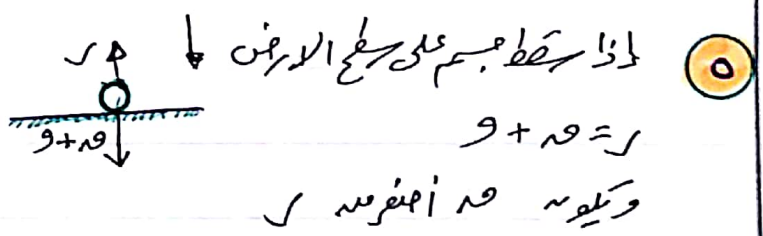 ٥ إذا سقط جسم على سطح الارض
ر = ق + و
ويكون ق أصغر من ر
ر
ق + و